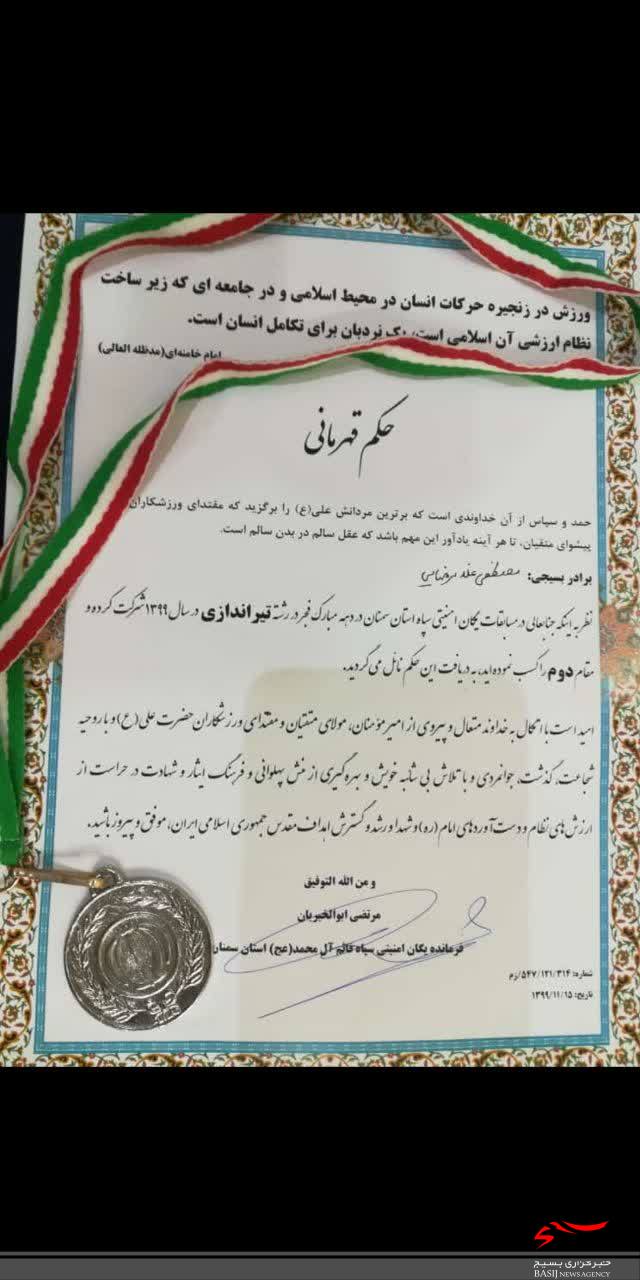 ورزش در زنجیره حرکات انسان در محیط اسلامی و در جامعه ای که زیر ساخت
نظام ارزشی آن اسلامی است، یک نردبان برای تکامل انسان است.
امام خامنه‌ای(مدظله العالی)
حکم قهرمانی
حمد و سپاس از آن خداوندی است که برترین مردانش علی(ع) را برگزید که مقتدای ورزشکاران
پیشوای متقیان، تا هر آینه یادآور این مهم باشد که عقل سالم در بدن سالم است.
برادر بسیجی: مصطفی
نظر به اینکه جنابعالی در مسابقات یگان امنیتی سپاه استان سمنان در دهه مبارک فجر در رشته تیراندازی در سال ۱۳۹۹ شرکت کرده و
مقام دوم را کسب نموده اید، به دریافت این حکم نائل می گردید.
امید است با اتکال به خداوند متعال و پیروی از امیرمؤمنان، مولای متقیان و مقتدای ورزشکاران حضرت علی(ع) و با روحیه
شجاعت، گذشت، جوانمردی و با تلاش بی شائبه خویش و بهره گیری از منش پهلوانی و فرهنگ ایثار و شهادت در حراست از
ارزش های نظام و دست آوردهای امام (ره) و شهدا و رشد و گسترش اهداف مقدس جمهوری اسلامی ایران، موفق و پیروز باشید.
و من الله التوفیق
مرتضی ابوالخیریان
فرمانده یگان امنیتی سپاه قائم آل محمد(عج) استان سمنان
شماره: ۵۴۷/۱۲۱/۳۱۴/زم
تاریخ: ۱۳۹۹/۱۱/۱۵
خبرگزاری بسیج
BASIJ NEWS AGENCY